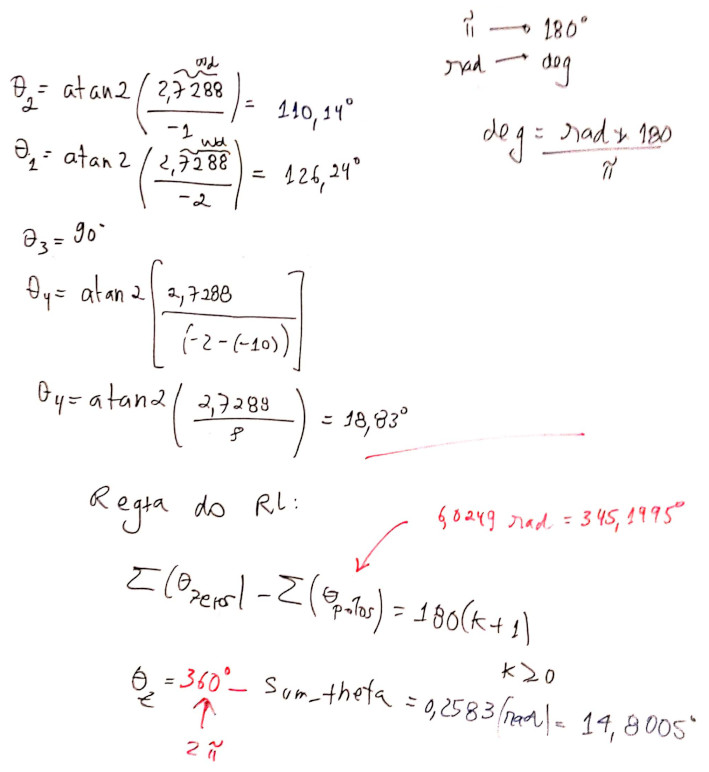 π → 180°
rad → deg
deg = rad * 180 / π
wd
θ₂ = atan2 (2,7288 / -1) = 110,14°
wd
θ₁ = atan2 (2,7288 / -2) = 126,24°
θ₃ = 90°
θ₄ = atan2 [2,7288 / (-2-(-10))]
θ₄ = atan2 (2,7288 / 8) = 18,83°
Regra do RL:
6,0249 rad = 345,1995°
Σ(θzeros) - Σ(θpolos) = 180(k+1)
k≥0
= 360° - sum_theta = 0,2583 (rad) = 14,8005°
2π